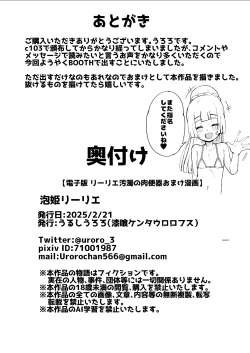 あとがき
ご購入いただきありがとうございます。うろろです。
c103で頒布してからかなり経ってしまいましたが、コメントや
メッセージで読みたいと言うお声をかなり多くいただくので
今回ようやくBOOTHで出すことにいたしました。
ただ出すだけなのもあれなのでおまけとして本作品を描きました。
抜けるものを描けてたら嬉しいです。
また指名
してくださいね♥
奥付け
【電子版 リーリエ汚濁の肉便器おまけ漫画】
泡姫リーリエ
発行日:2025/2/21
発行:うるしうろろ(漆嫩ケンタウロロフス)
Twitter:@uroro_3
pixiv ID:71001987
mail:Urorochan566@gmail.com
※本作品の物語はフィクションです。
実在の人物、事件、団体等には一切関係ありません。
※本作品の18歳未満の閲覧、購入を禁止いたします。
※本作品の全ての画像、文章、内容等の無断複製、転写
転載を禁止いたします。
※本作品のAI学習を禁止いたします。